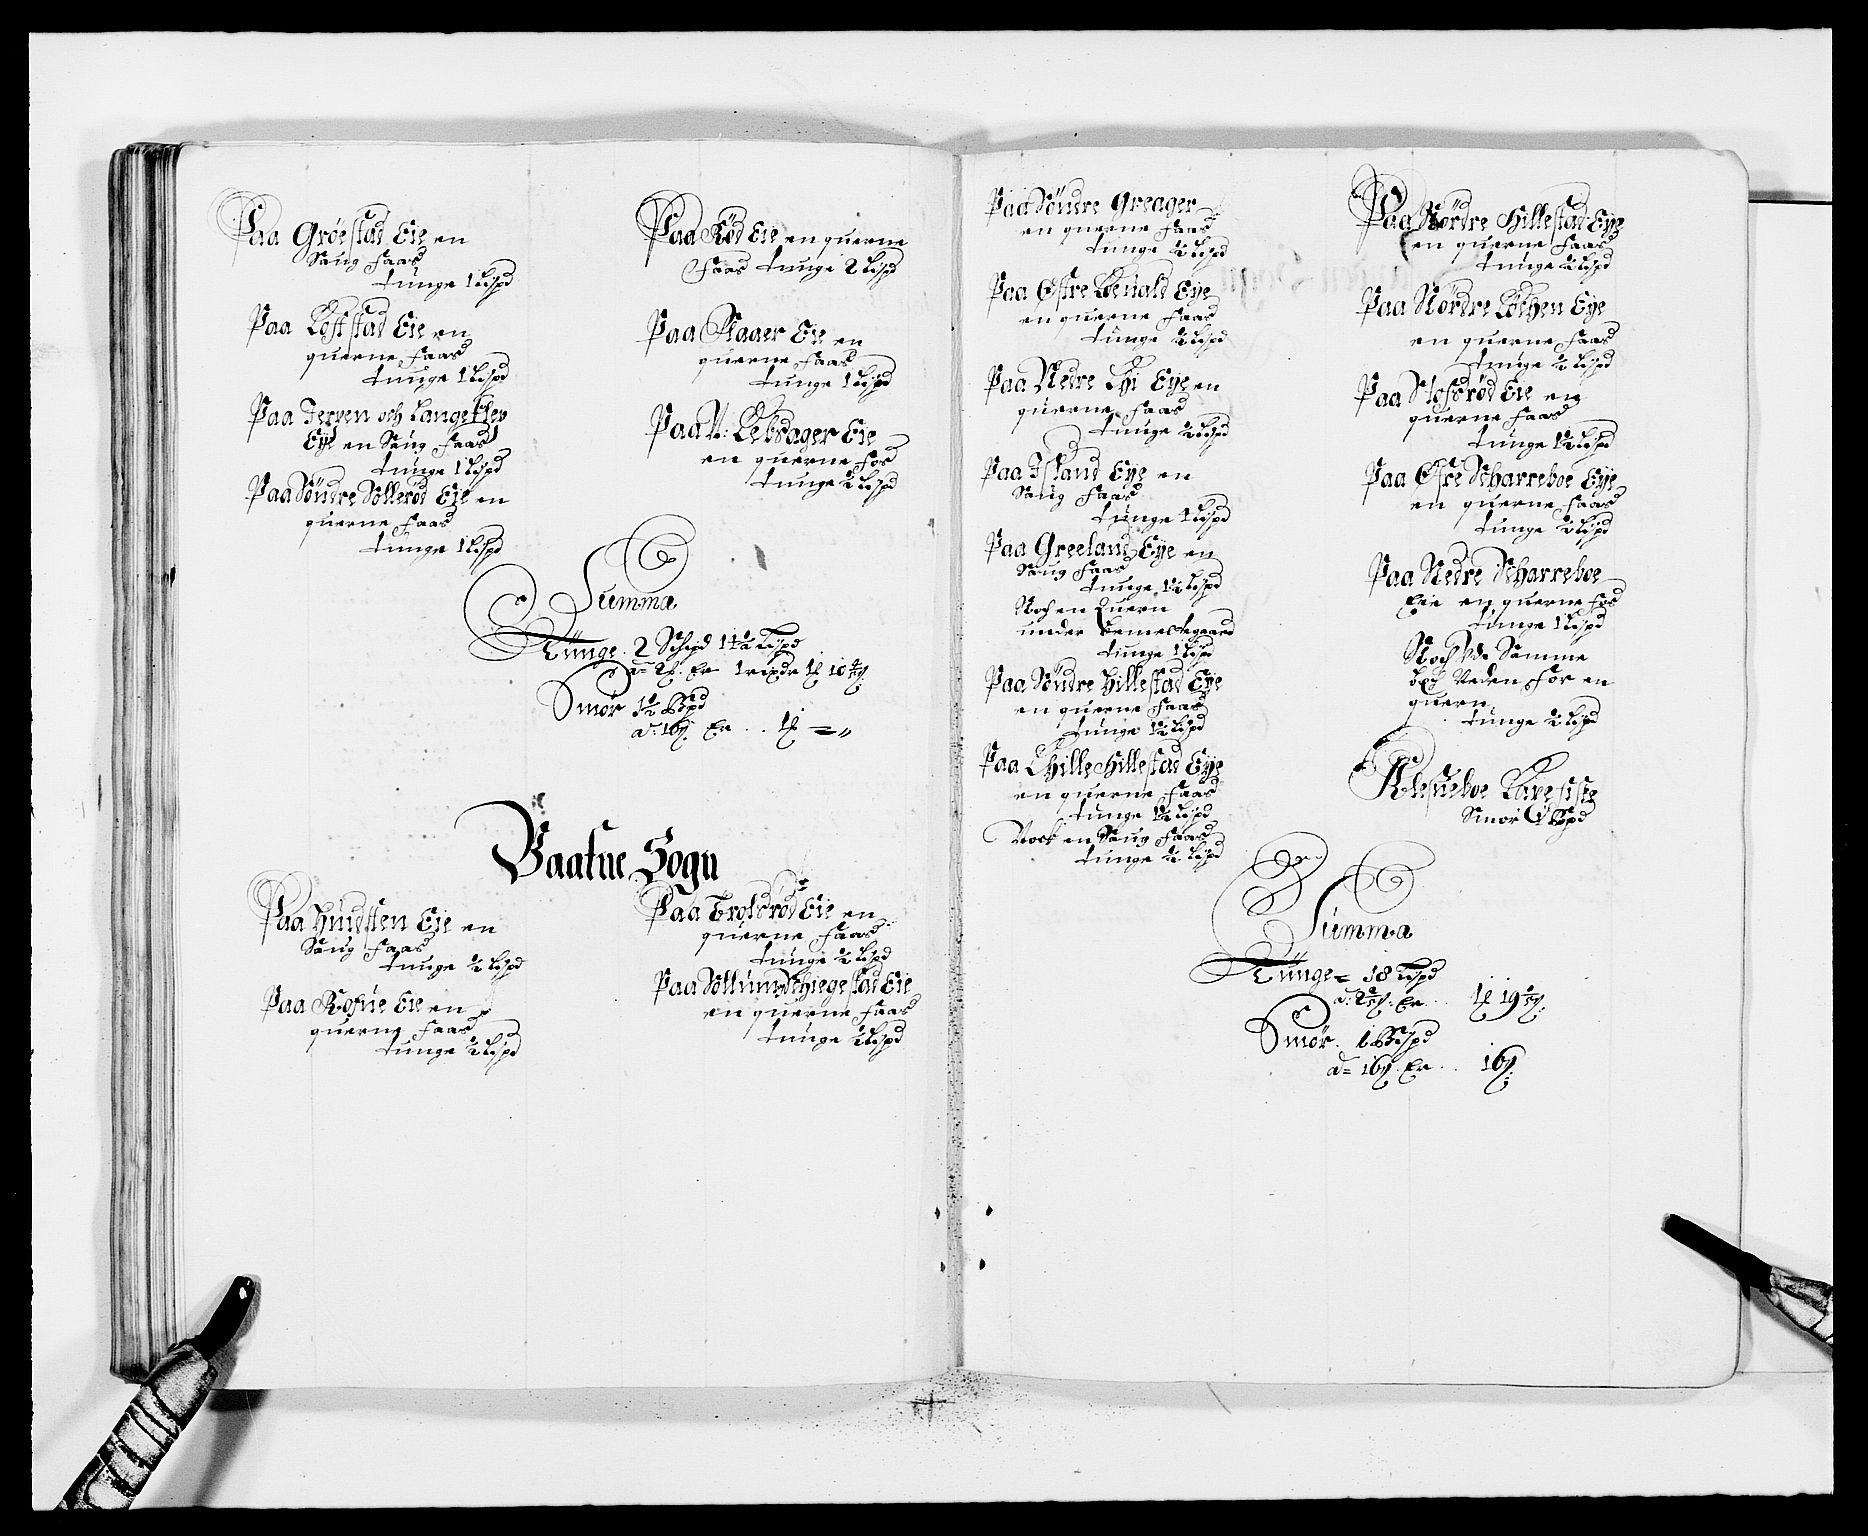 Paa Gröestad Eie en
Saug faas
tunge 1 Lispd
Paa Löfstad Eie en
querne faas
tunge 1 Lispd
Paa Jerven och Langeklev
Eye en Saug faas
tunge 1 Lispd
Paa Söndre Solleröd Eie en
querne faas
tunge 1 Lispd
Paa Röd Eie en querne
faas tunge 2 Lispd
Paa Klaaer Eie en
querne faas
tunge 1 Lispd
Paa N: Lebsager Eie
en querne fos
tunge ½ Lispd
Summa
Tunge 2 Schpd 14½ Lispd
Er
Smör 1½ Bspd
Er
Vaafne Sogn
Paa Huidsten Eie en
Saug faas
tunge ½ Lispd
Paa Rosne Eie en
querne faas
tunge ½ Lispd
Paa Trolsröd Eie en
querne faas
tunge ½ Lispd
Paa Sollum Schiegestad Eie
en querne faas
tunge ½ Lispd
Paa Söndre Greager
en querne faas
tunge ½ Lispd
Paa Östre Lönald Eye
en querne faas
tunge ½ Lispd
Paa Nedre Lyi Eye en
querne faas
tunge ½ Lispd
Paa Island Eye en
Saug faas
tunge 1 Lispd
Paa Greeland Eye en
Saug faas
tunge 1½ Lispd
Noch en Quern
under
tunge 1 Lispd
Paa Söndre Hillestad Eye
en querne faas
tunge 1½ Lispd
Paa Lille Hillestad Eye
en querne faas
tunge 1½ Lispd
Noch en Saug faas
tunge ½ Lispd
Paa Nördre Hillestad Eye
en querne faas
tunge ½ Lispd
Paa Nördre Löchen Eye
en querne faas
tunge ½ Lispd
Paa Stofsröd Eie en
querne faas
tunge 1½ Lispd
Paa Öfre Scharreboe Eye
en querne faas
tunge ½ Lispd
Paa Nedre Scharreboe
Eie en querne fos
tunge 1 Lispd
Noch Samme
Neden for en
quern
tunge ½ Lispd
Klesueboe
Smör 1 Bspd
Summa
Tunge 18 Lispd
Er
Smör 1 Bispd
Er